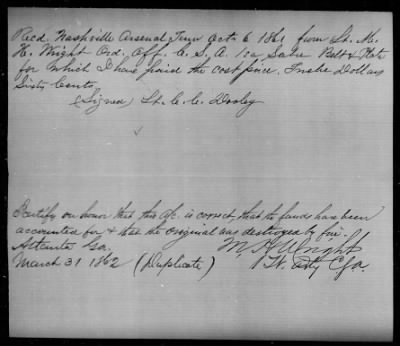 Recd. Nashville Arsenal Tenn Oct. 6 1861 from Lt. M.
H. Wright Ord. Off. C. S. A. 1 ea Sabre Belt & Plate
for which I have paid the cost price. Twelve Dollars
Sixty Cents.
(Signed) Lt. C. C.
I certify on honor that this a/c. is correct, that the funds have been
accounted for & that the original was destroyed by fire.
Atlanta Ga.
M. H. Wright
March 31 1862 (Duplicate)
Lt. Arty CSA.